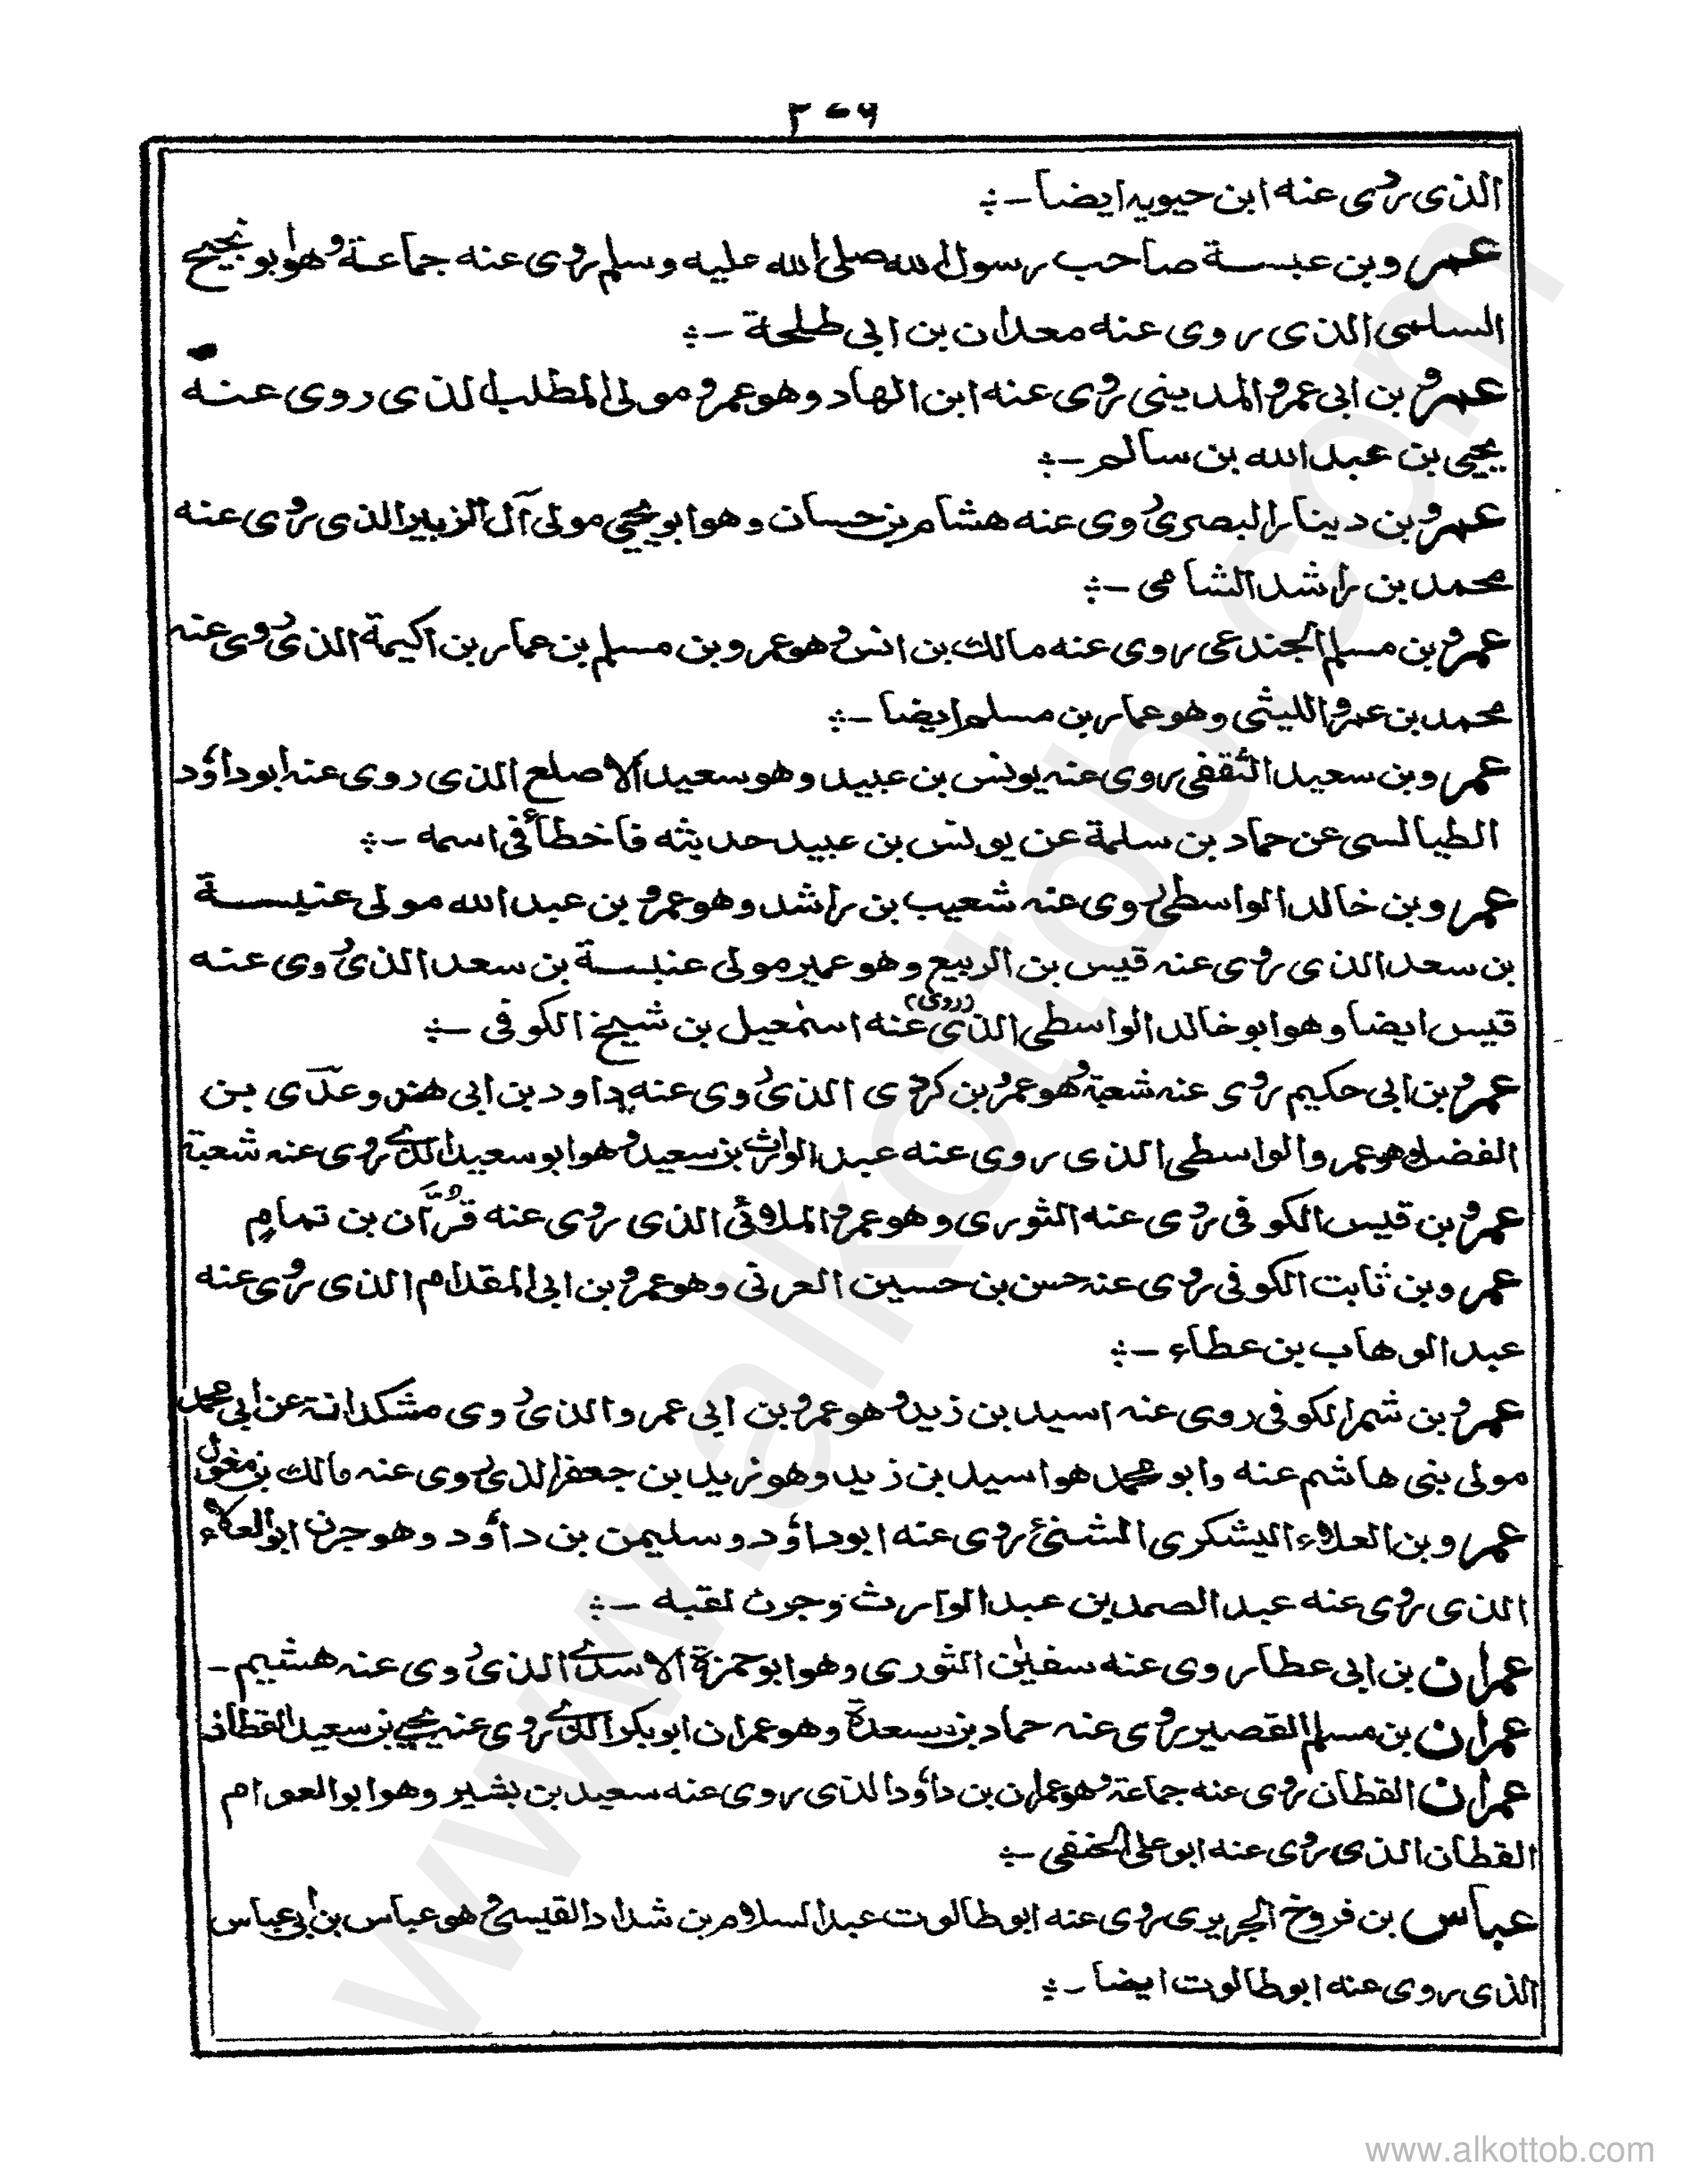 الذى روى عنه ابن حيويه ايضا -
عمرو بن عبسة صاحب رسول الله صلى الله عليه وسلم روى عنه جماعة وهو ابو نجيح
السلمى الذى روى عنه معدان بن ابى طلحة -
عمرو بن ابى عمرو المدينى روى عنه ابن الهاد وهو عمرو مولى المطلب الذى روى عنه
يحيى بن عبد الله بن سالم -
عمرو بن دينار البصرى روى عنه هشام بن حسان وهو ابو يحيى مولى آل الزبير الذى روى عنه
محمد بن راشد الشامى -
عمرو بن مسلم الجندعى روى عنه مالك بن انس وهو عمرو بن مسلم بن عمار بن اكيمة الذى روى عنه
محمد بن عمرو الليثى وهو عمار بن مسلم ايضا -
عمرو بن سعيد الثقفى روى عنه يونس بن عبيد وهو سعيد الاصلع الذى روى عنه ابو داؤد
الطيالسى عن حماد بن سلمة عن يونس بن عبيد حديثه فاخطأ فى اسمه -
عمرو بن خالد الواسطى روى عنه شعيب بن راشد وهو عمرو بن عبد الله مولى عنبسة
بن سعد الذى روى عنه قيس بن الربيع وهو عمير مولى عنبسة بن سعد الذى روى عنه
قيس ايضا وهو ابو خالد الواسطى الذى (روى) عنه اسمعيل بن شيخ الكوفى -
عمرو بن ابى حكيم روى عنه شعبة وهو عمرو بن كردى الذى روى عنه داود بن ابى هند وعدّى بن
الفضل وهو عمرو الواسطى الذى روى عنه عبد الوارث بن سعيد وهو ابو سعيد الذے روى عنه شعبة
عمرو بن قيس الكوفى روى عنه الثورى وهو عمرو الملائى الذى روى عنه قُرَّان بن تمامٍ
عمرو بن ثابت الكوفى روى عنه حسن بن حسين العرنى وهو عمرو بن ابى المقدام الذى روى عنه
عبد الوهاب بن عطاء -
عمرو بن شمر الكوفى روى عنه اسيد بن زيد وهو عمرو بن ابى عمرو الذى روى مشكدانة عن ابى محمد
مولى بنى هاشم عنه وابو محمد هو اسيد بن زيد وهو يزيد بن جعفر الذى روى عنه مالك بن مغول
عمرو بن العلاء اليشكرى روى عنه ابو داؤد وسليمن بن داؤد وهو جرن ابو العلاء
الذى روى عنه عبد الصمد بن عبد الوارث وجرن لقبه -
عمران بن ابى عطا روى عنه سفين الثورى وهو ابو حمزة الاسدے الذى روى عنه هشيم -
عمران بن مسلم القصير روى عنه حماد بن مسعدة وهو عمران ابو بكر الذے روى عنه يحيى بن سعيد القطان
عمران القطان روى عنه جماعة وهو عمران بن داؤد الذى روى عنه سعيد بن بشير وهو ابو العوام
القطان الذى روى عنه ابو على الحنفى -
عباس بن فروخ الجريرى روى عنه ابو طالوت عبد السلام بن شداد القيسى وهو عباس بن ابى عباس
الذى روى عنه ابو طالوت ايضا -
www.alkottob.com
www.alkottob.com